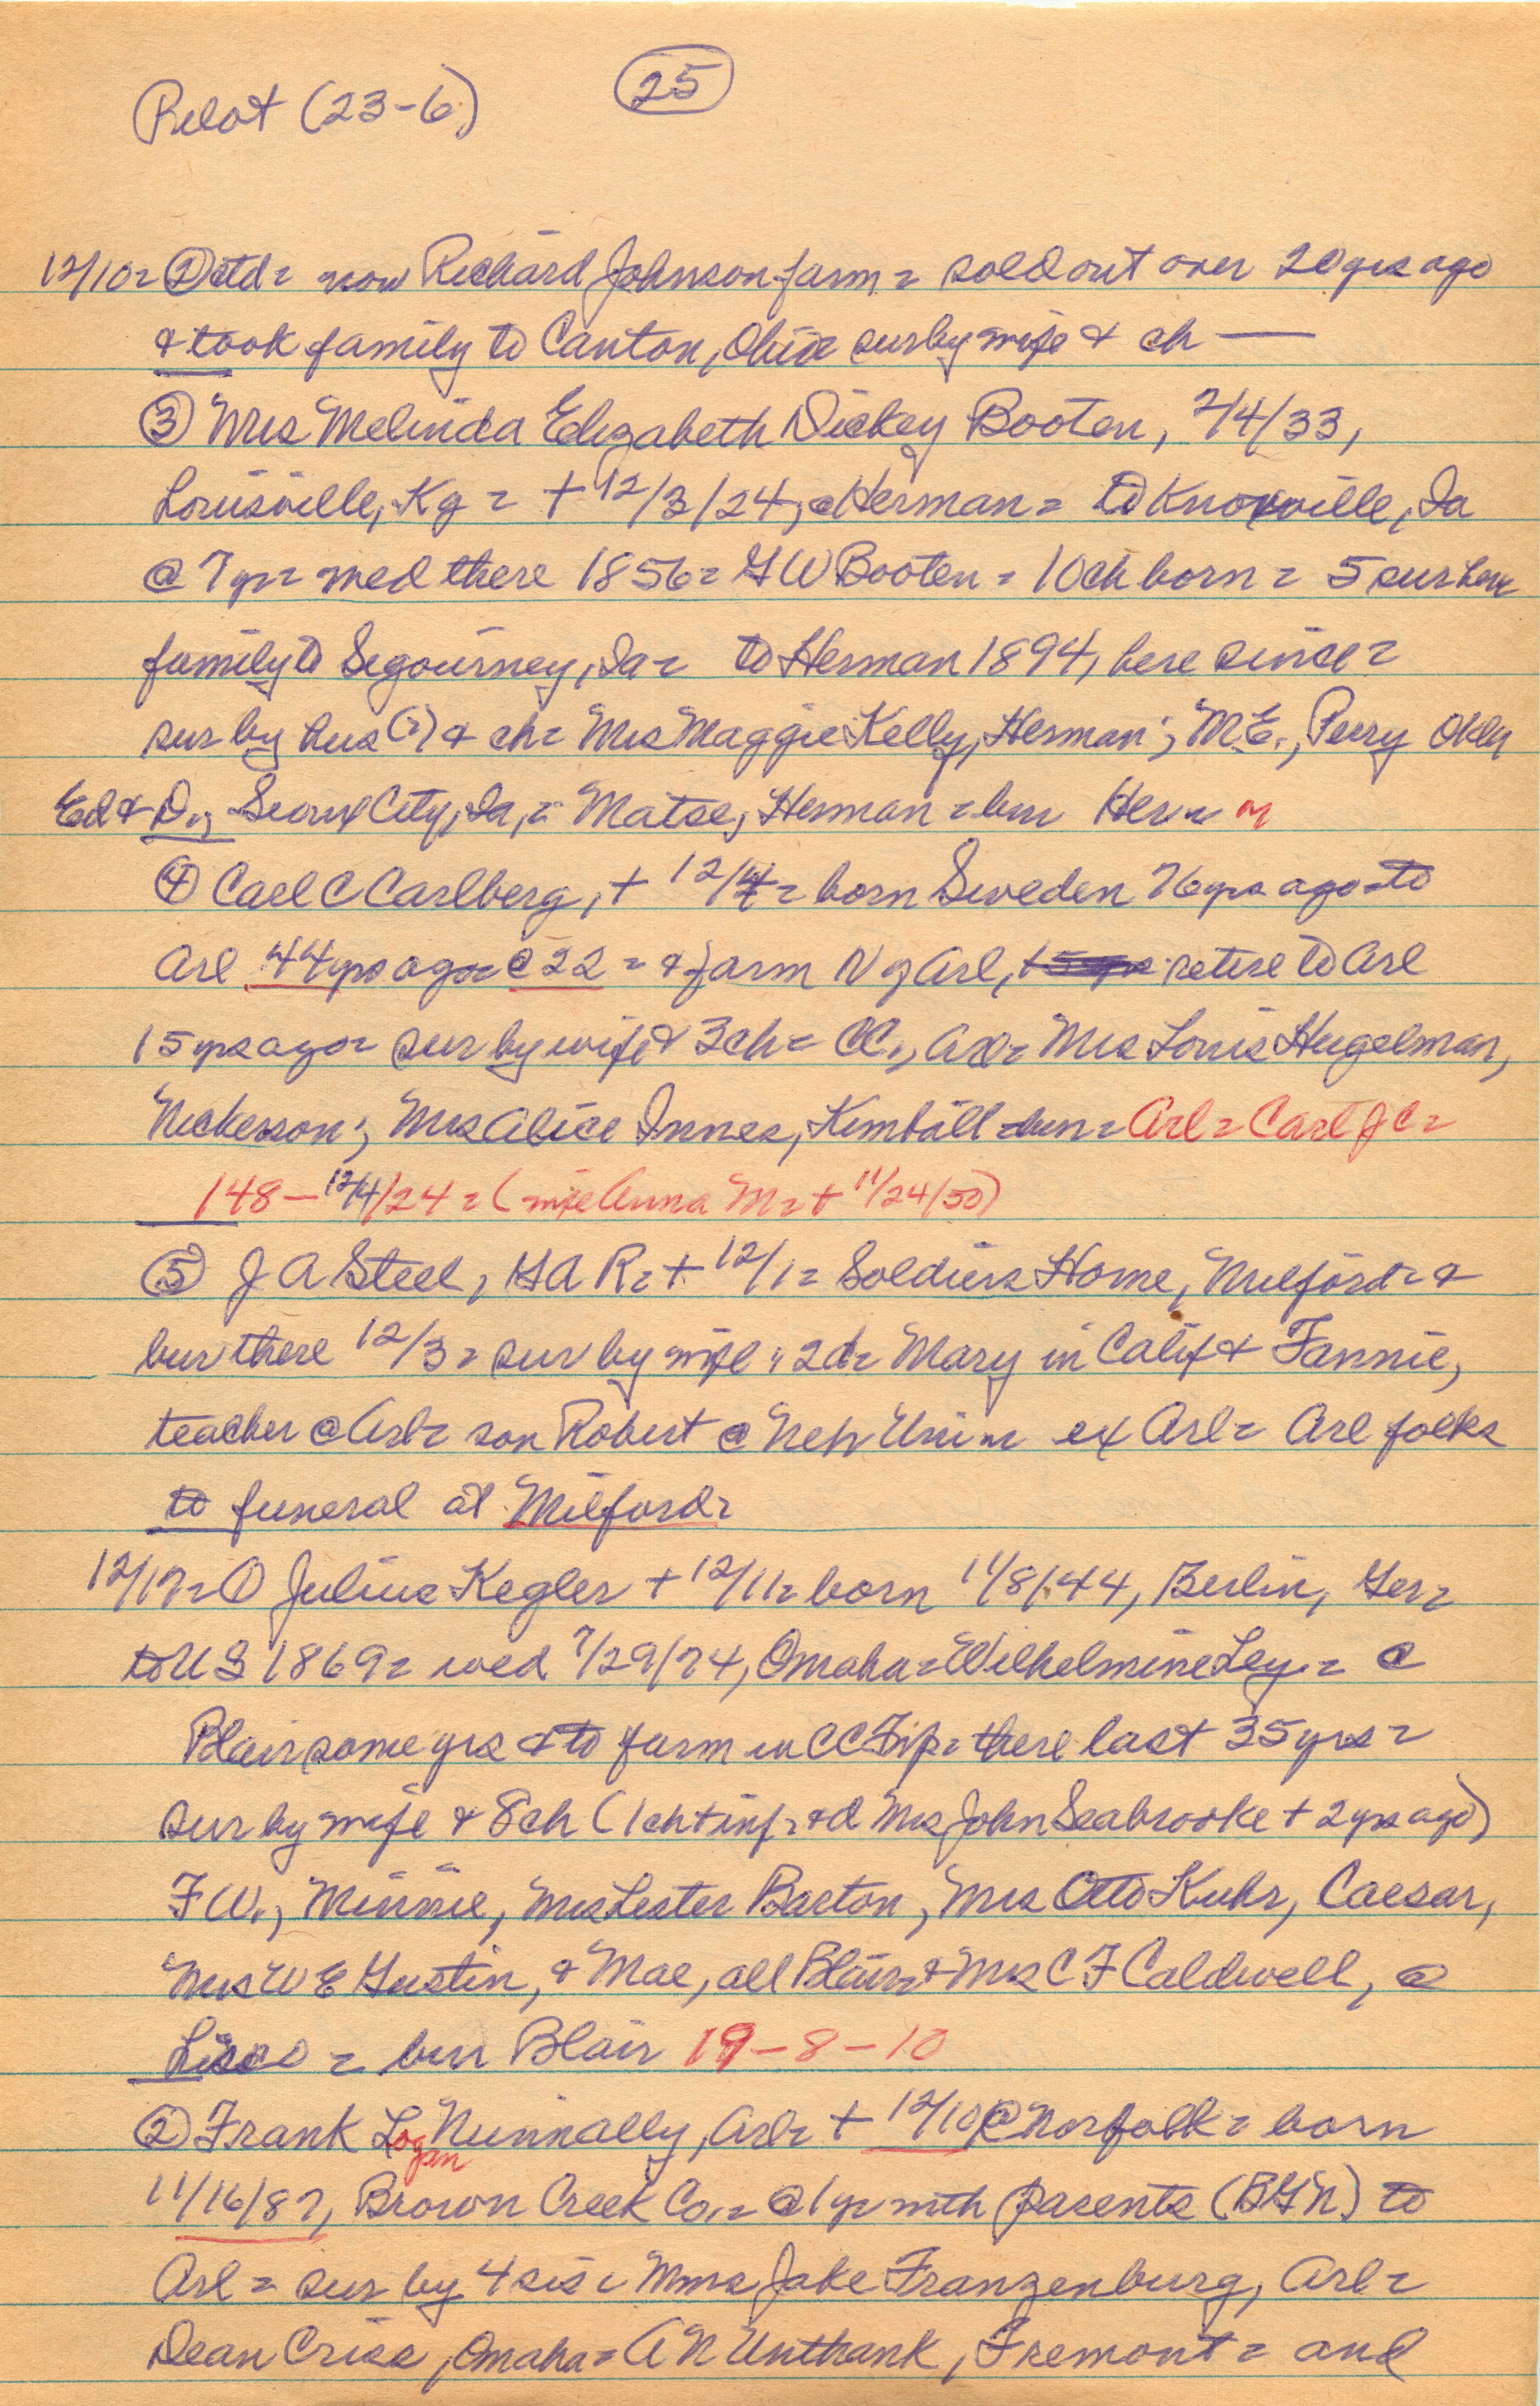 Pilot (23-6)
25
12/10= ② ctd= now Richard Johnson farm = sold out over 20 yrs ago
& took family to Canton, Ohio sur by wife & ch —
③ Mrs Melinda Elizabeth Dickey Booten, 2/4/33,
Louisville, Ky = + 12/3/24, @ Herman = to Knoxville, Ia
@ 7 yr= wed there 1856= G W Booten = 10 ch born = 5 sur here
family to Segourney, Ia = to Herman 1894, here since =
sur by hus (?) & ch= Mrs Maggie Kelly, Herman; M.E., Perry Okla
Ed & D., Sioux City, Ia, = Matse, Herman = bur Her =
④ Carl C Carlberg, + 12/4 = born Sweden 76 yrs ago = to
Arl 44 yrs ago = @ 22 = & farm N of Arl, retire to Arl
15 yrs ago = sur by wife & 3 ch = CC., Arl = Mrs Louis Hugelman,
Nickerson; Mrs Alice Innes, Kimball = bur = Arl = Carl J C =
148 — 12/4/24 = (wife Anna M = + 11/24/50)
⑤ J A Steel, GAR = + 12/1 = Soldiers Home, Milford = &
bur there 12/3 = sur by wife & 2d = Mary in Calif & Fannie,
teacher @ Arl = son Robert @ Neb Uni = ex Arl = Arl folks
to funeral at Milford =
12/17 = ① Julius Kegler + 12/11 = born 11/8/44, Berlin, Ger =
to US 1869 = wed 7/29/74, Omaha = Wilhelmine Ley = @
Blair some yrs & to farm in CC Twp = there last 35 yrs =
sur by wife & 8 ch (1 ch + inf = & d Mrs John Seabrooke + 2 yrs ago)
F W., Minnie, Mrs Lester Barton, Mrs Otto Kuhr, Caesar,
Mrs W E Gustin, & Mae, all Blair & Mrs C F Caldwell, @
Lisco = bur Blair 19-8-10
② Frank Logan Nunnally, Arl = + 12/10 @ Norfolk = born
11/16/87, Brown Creek Co. = @ 1 yr with parents (BGN) to
Arl = sur by 4 sis = Mmes Jake Franzenburg, Arl =
Dean Criss, Omaha = A N Unthank, Fremont = and